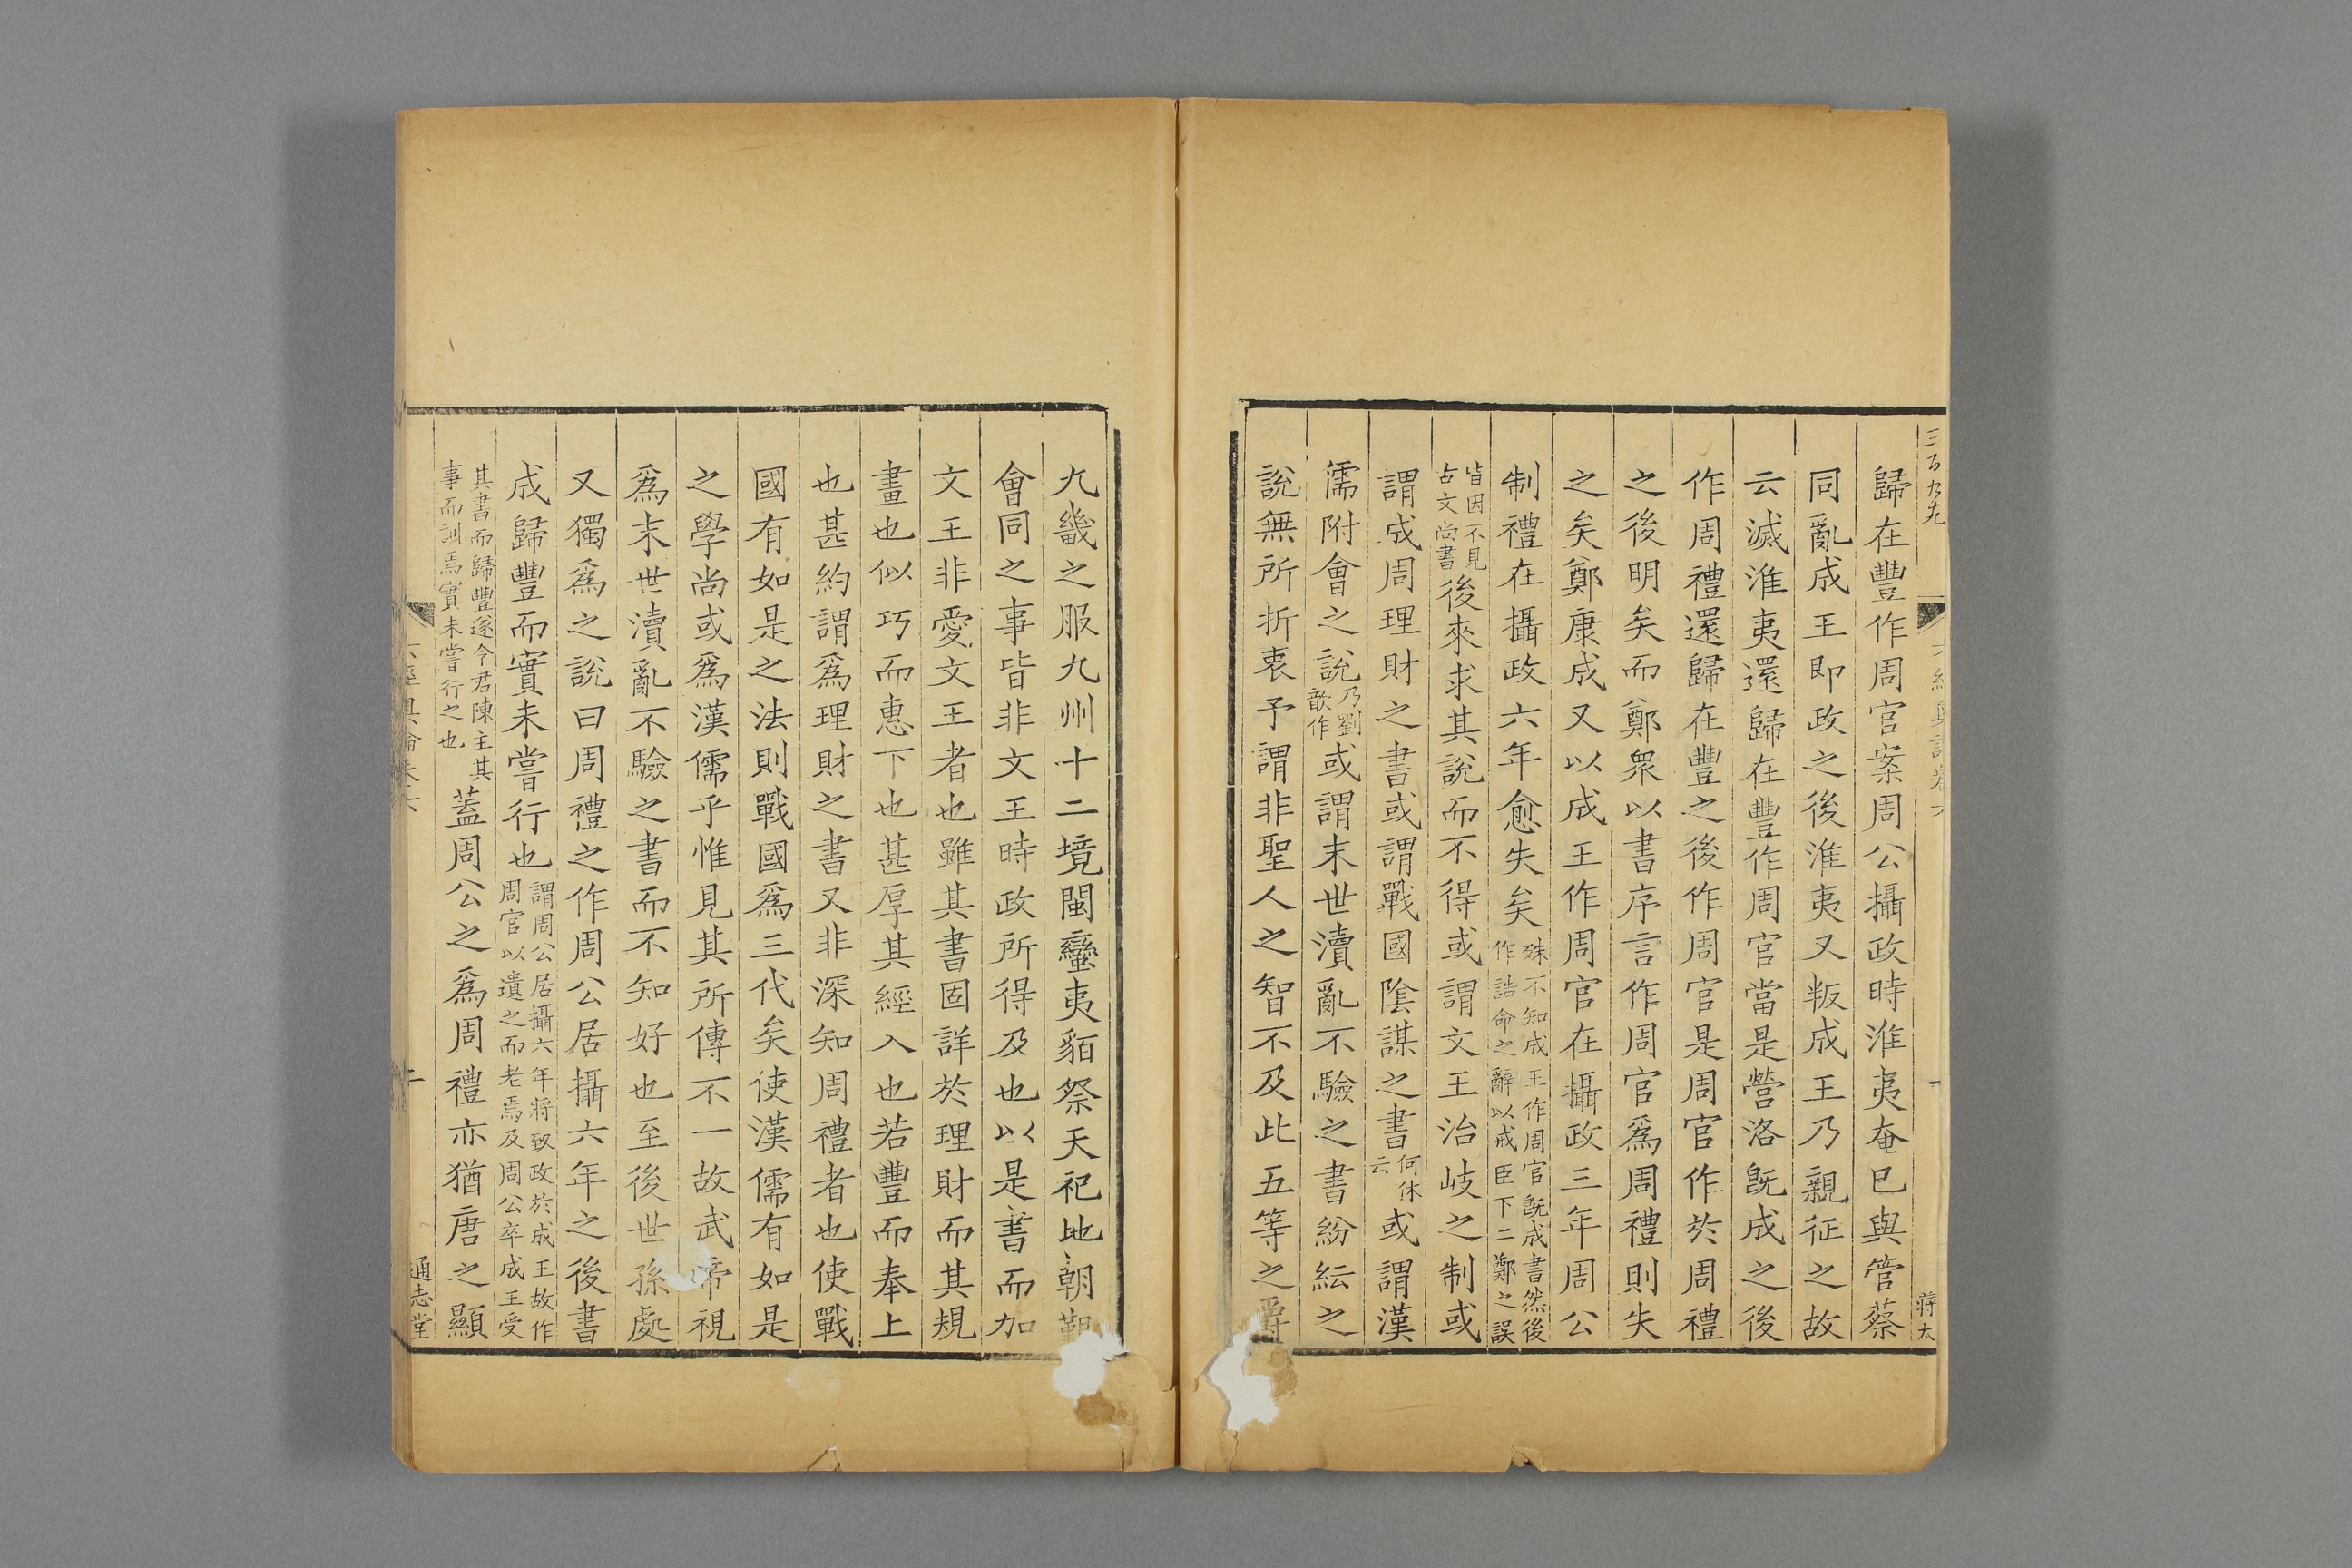 三百九十九
蔣太
歸在豐作周官案周公攝政時淮夷奄已與管蔡
同亂成王即政之後淮夷又叛成王乃親征之故
云滅淮夷還歸在豐作周官當是營洛既成之後
作周禮還歸在豐之後作周官是周官作於周禮
之後明矣而鄭衆以書序言作周官爲周禮則失
之矣鄭康成又以成王作周官在攝政三年周公
制禮在攝政六年愈失矣殊不知成王作周官既成書然後作誥命之辭以戒臣下二鄭之誤
皆因不見古文尚書後來求其說而不得或謂文王治岐之制或
謂成周理財之書或謂戰國陰謀之書何休云或謂漢
儒附會之說乃劉歆作或謂末世瀆亂不驗之書紛紜之
說無所折衷予謂非聖人之智不及此五等之爵
九畿之服九州十二境閩蠻夷貊祭天祀地朝覲
會同之事皆非文王時政所得及也以是書而加
文王非愛文王者也雖其書固詳於理財而其規
畫也似巧而惠下也甚厚其經入也若豐而奉上
也甚約謂爲理財之書又非深知周禮者也使戰
國有如是之法則戰國爲三代矣使漢儒有如是
之學尚或爲漢儒乎惟見其所傳不一故武帝視
爲末世瀆亂不驗之書而不知好也至後世孫處
又獨爲之說曰周禮之作周公居攝六年之後書
成歸豐而實未嘗行也謂周公居攝六年將致政於成王故作周官以遺之而老焉及周公卒成王受
其書而歸豐遂令君陳主其事而訓焉實未嘗行之也蓋周公之爲周禮亦猶唐之顯
二
通志堂